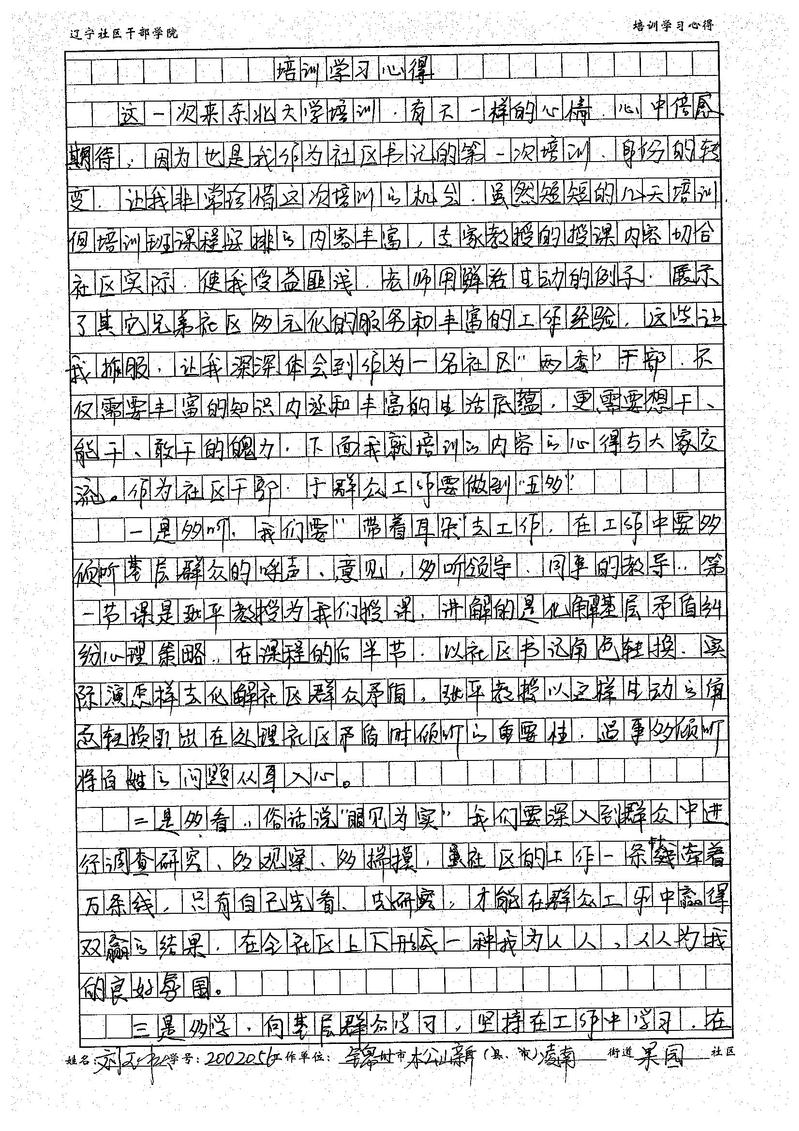 辽宁社区干部学院 培训学习心得
培训学习心得
这一次来东北大学培训，有天一样的心情，心中倍感
期待，因为也是我作为社区书记的第一次培训，身份的转
变，让我非常珍惜这次培训的机会，虽然短短的几天培训
但培训班课程安排的内容丰富，专家教授的授课内容切合
社区实际，使我受益匪浅，老师用鲜活生动的例子，展示
了其它兄弟社区多元化的服务和丰富的工作经验，这些让
我折服，让我深深体会到作为一名社区“两委”干部，不
仅需要丰富的知识内涵和丰富的生活底蕴，更需要想干、
能干、敢干的魄力，下面我就培训的内容的心得与大家交
流。作为社区干部，于群众工作要做到“五多”
一是多听，我们要“带着耳朵”去工作，在工作中要多
倾听基层群众的呼声、意见，多听领导、同事的教导，第
一节课是张平教授为我们授课，讲解的是化解基层矛盾纠
纷心理策略，在课程的后半节，以社区书记角色转换，实
际演怎样去化解社区群众矛盾，张平教授以这样生动的角
色转换突出在处理社区矛盾时倾听的重要性，遇事多倾听
将百姓的问题从耳入心。
二是多看，俗话说“眼见为实”我们要深入到群众中进
行调查研究、多观察、多揣摸，虽社区的工作一条线牵着
万条线，只有自己先看、先研究，才能在群众工作中赢得
双赢的结果，在全社区上下形成一种我为人人，人人为我
的良好氛围。
三是多学，向基层群众学习，坚持在工作中学习，在
姓名： 学号：2002056 工作单位： 市 （县、市）凌南 街道 果园 社区